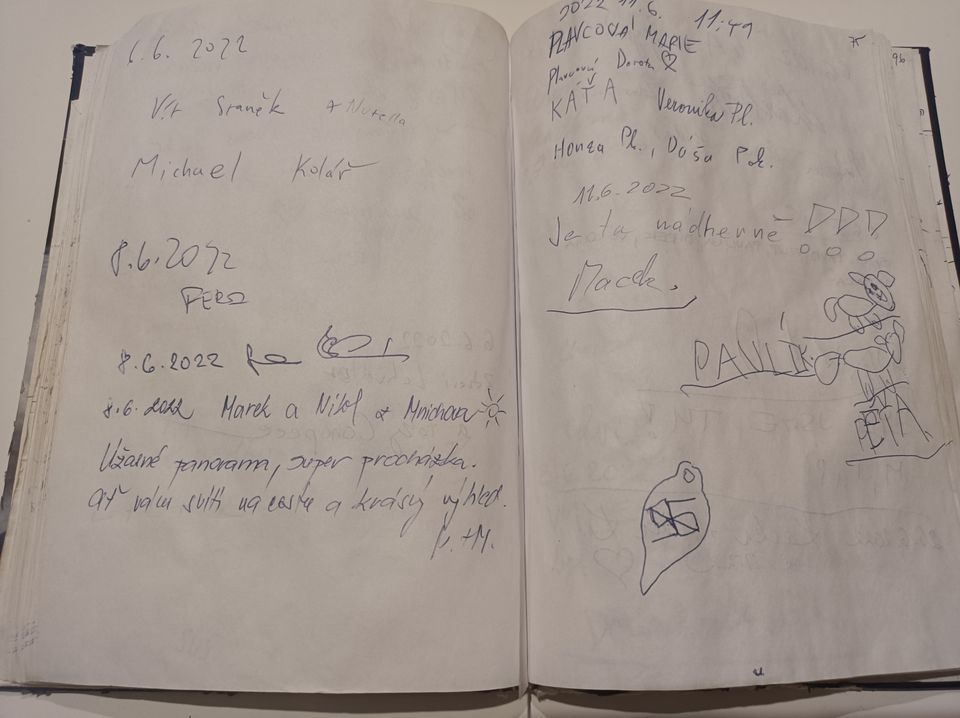 6.6. 2022
Vít Staněk + Nutella
Michael Kolář
8.6.2022
FERO
8.6.2022
8.6.2022 Marek a Nikol z Mnichova
Úžasné panorama, super procházka.
ať vám svítí na cestu a krásný výhled.
N. + M.
2022 11.6. 11:49
PLAVCOVÁ MARIE
Plavcová Dorota
KÁŤA Veronika Pl.
Honza Pl., Dáša Pok.
11.6.2022
Je to nádherné
Macek.
PAVLÍK